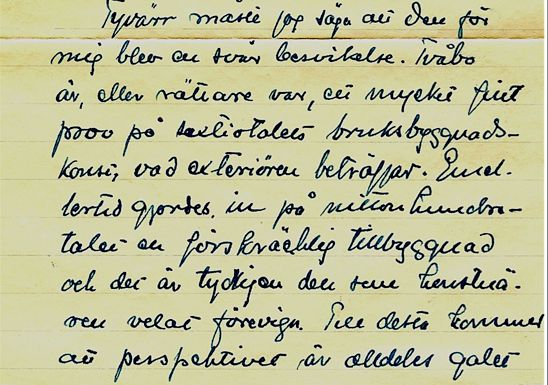 Tyvärr måste jag säga att den för
mig blev en svår besvikelse. Tvåbo
är, eller rättare var, ett mycket fint
prov på sextiotalets bruksbyggnads-
konst, vad exteriören beträffar. Emel-
lertid gjordes in på nittonhundra-
talet en förskräcklig tillbyggnad
och det är tydligen den som konstnä-
ren velat föreviga. Till detta kommer
att perspektivet är alldeles galet